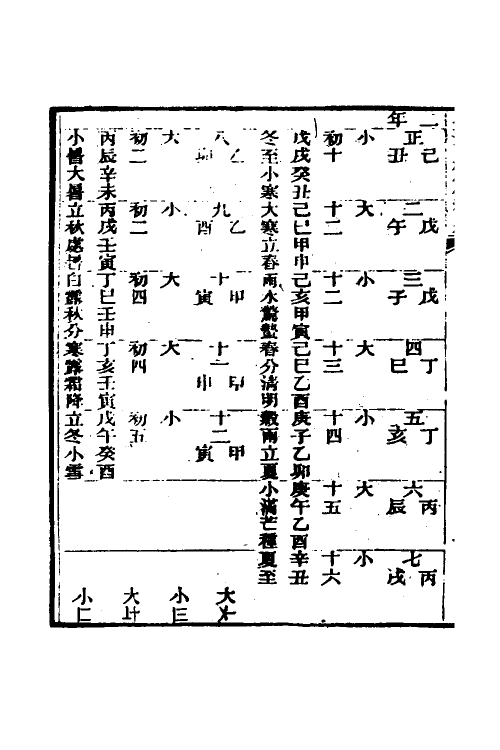 二年
正 己丑 二 戊午 三 戊子 四 丁巳 五 丁亥 六 丙辰 七 丙戌
小 大 小 大 小 大 小
初十 十二 十二 十三 十四 十五 十六
戊戌癸丑己巳甲申己亥甲寅己巳乙酉庚子乙卯庚午乙酉辛丑
冬至小寒大寒立春雨水驚蟄春分清明穀雨立夏小滿芒種夏至
八 乙卯 九 乙酉 十 甲寅 十一 甲申 十二 甲寅
大 小 大 大 小
初二 初二 初四 初四 初五
丙辰辛未丙戌壬寅丁巳壬申丁亥壬寅戊午癸酉
小暑大暑立秋處暑白露秋分寒露霜降立冬小雪
大
小三
大
小